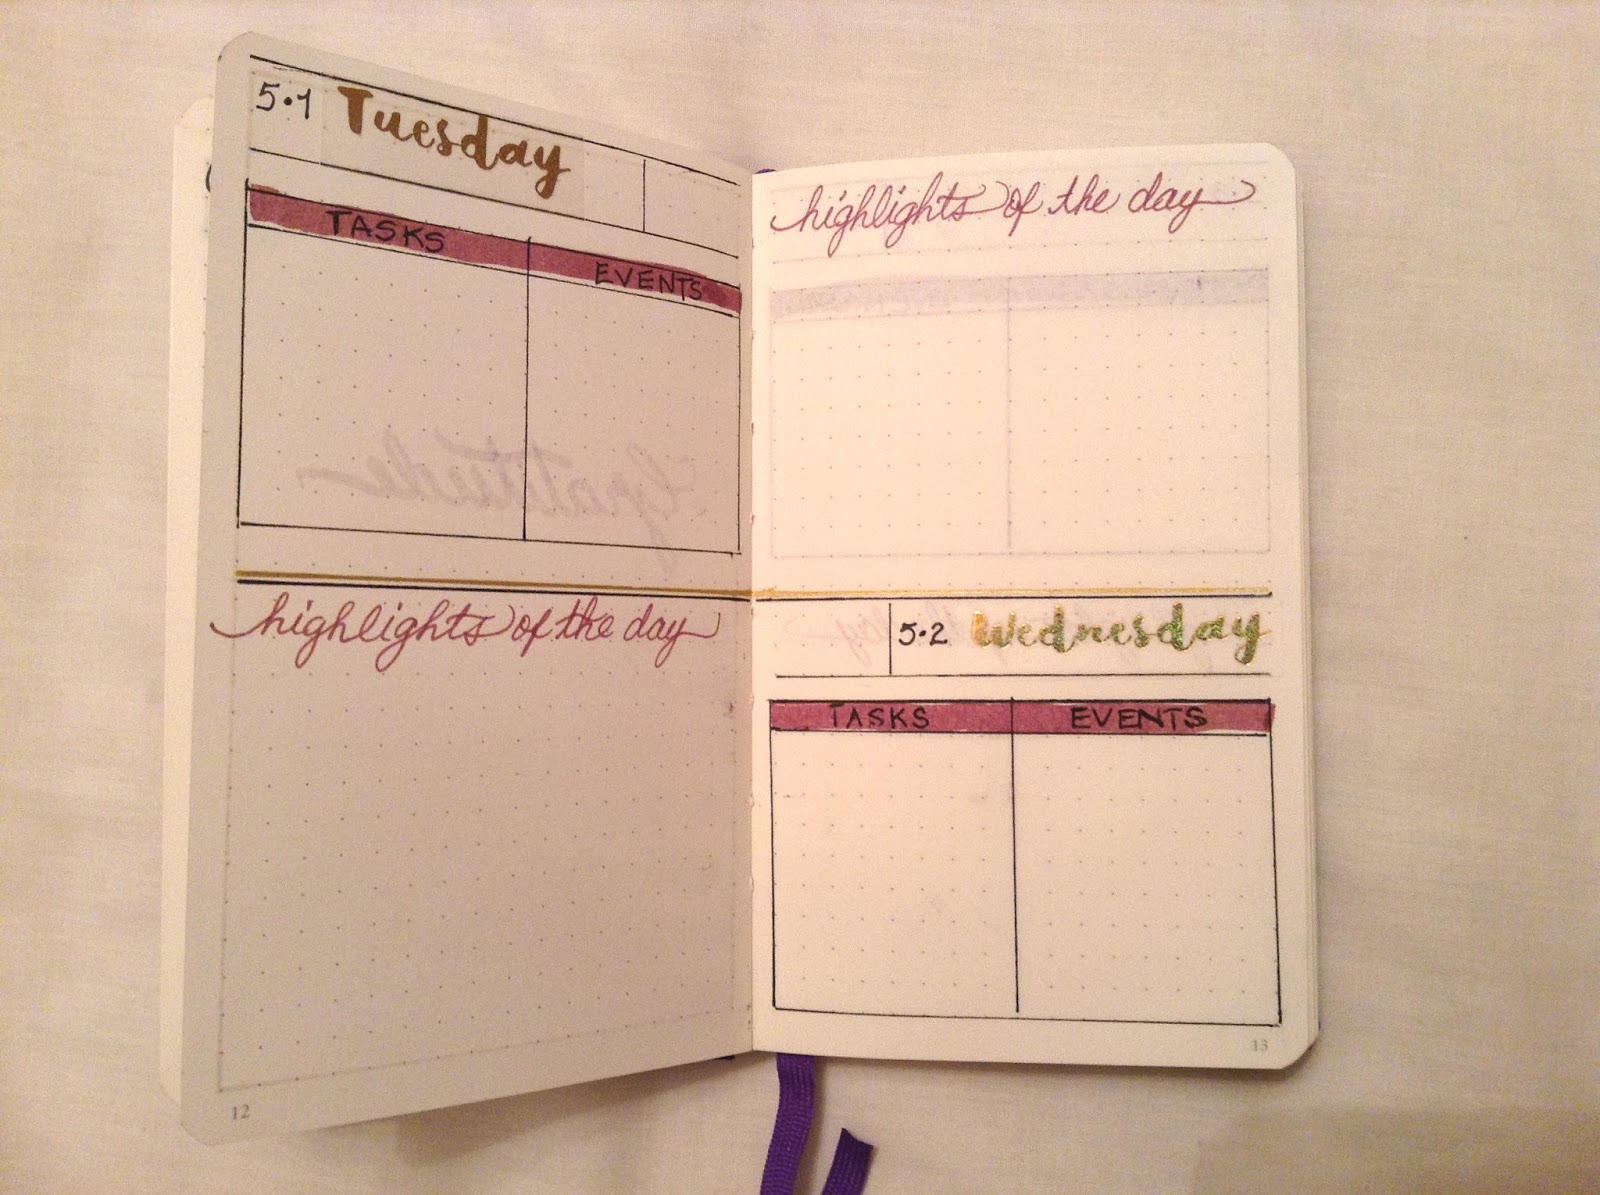 5.1 Tuesday
TASKS EVENTS
highlights of the day
12
highlights of the day
5.2 Wednesday
TASKS EVENTS
13
Gratitude